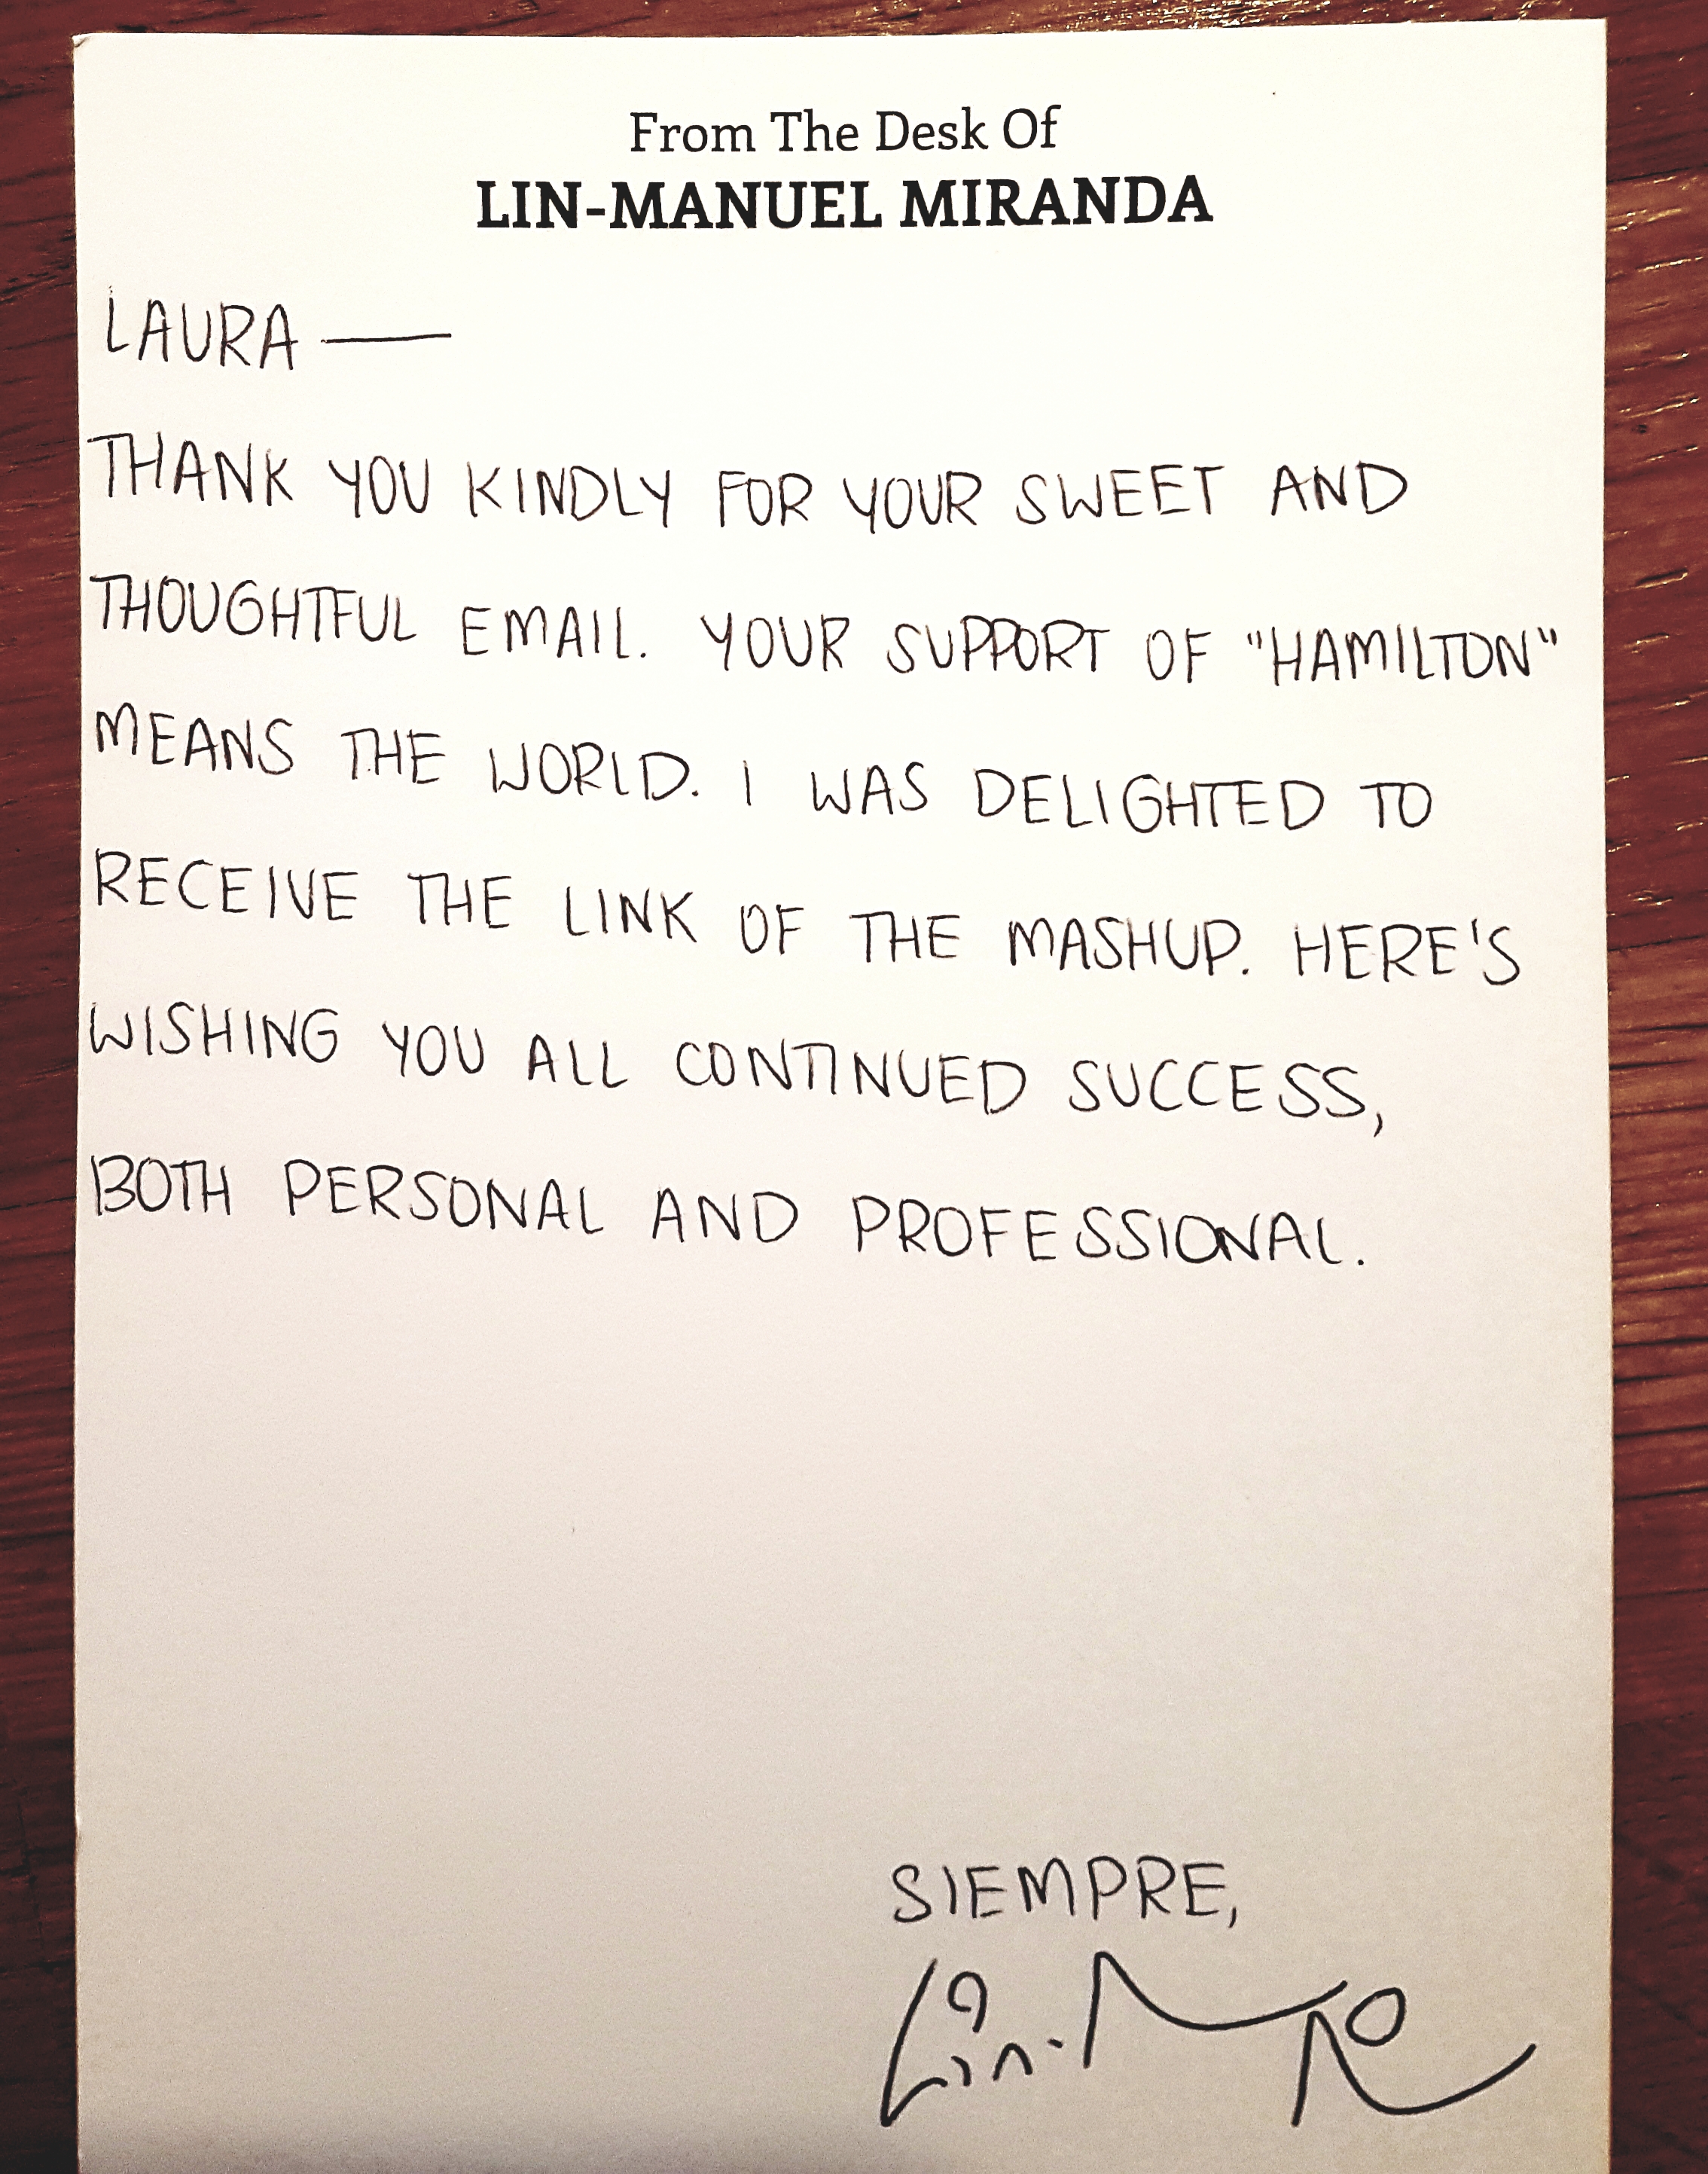 From The Desk Of
LIN-MANUEL MIRANDA
LAURA —
THANK YOU KINDLY FOR YOUR SWEET AND
THOUGHTFUL EMAIL. YOUR SUPPORT OF "HAMILTON"
MEANS THE WORLD. I WAS DELIGHTED TO
RECEIVE THE LINK OF THE MASHUP. HERE'S
WISHING YOU ALL CONTINUED SUCCESS,
BOTH PERSONAL AND PROFESSIONAL.
SIEMPRE,
Lin-